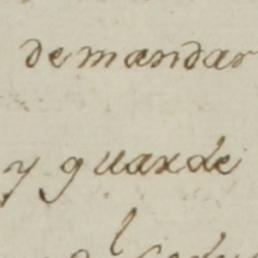 demandar
y guarde